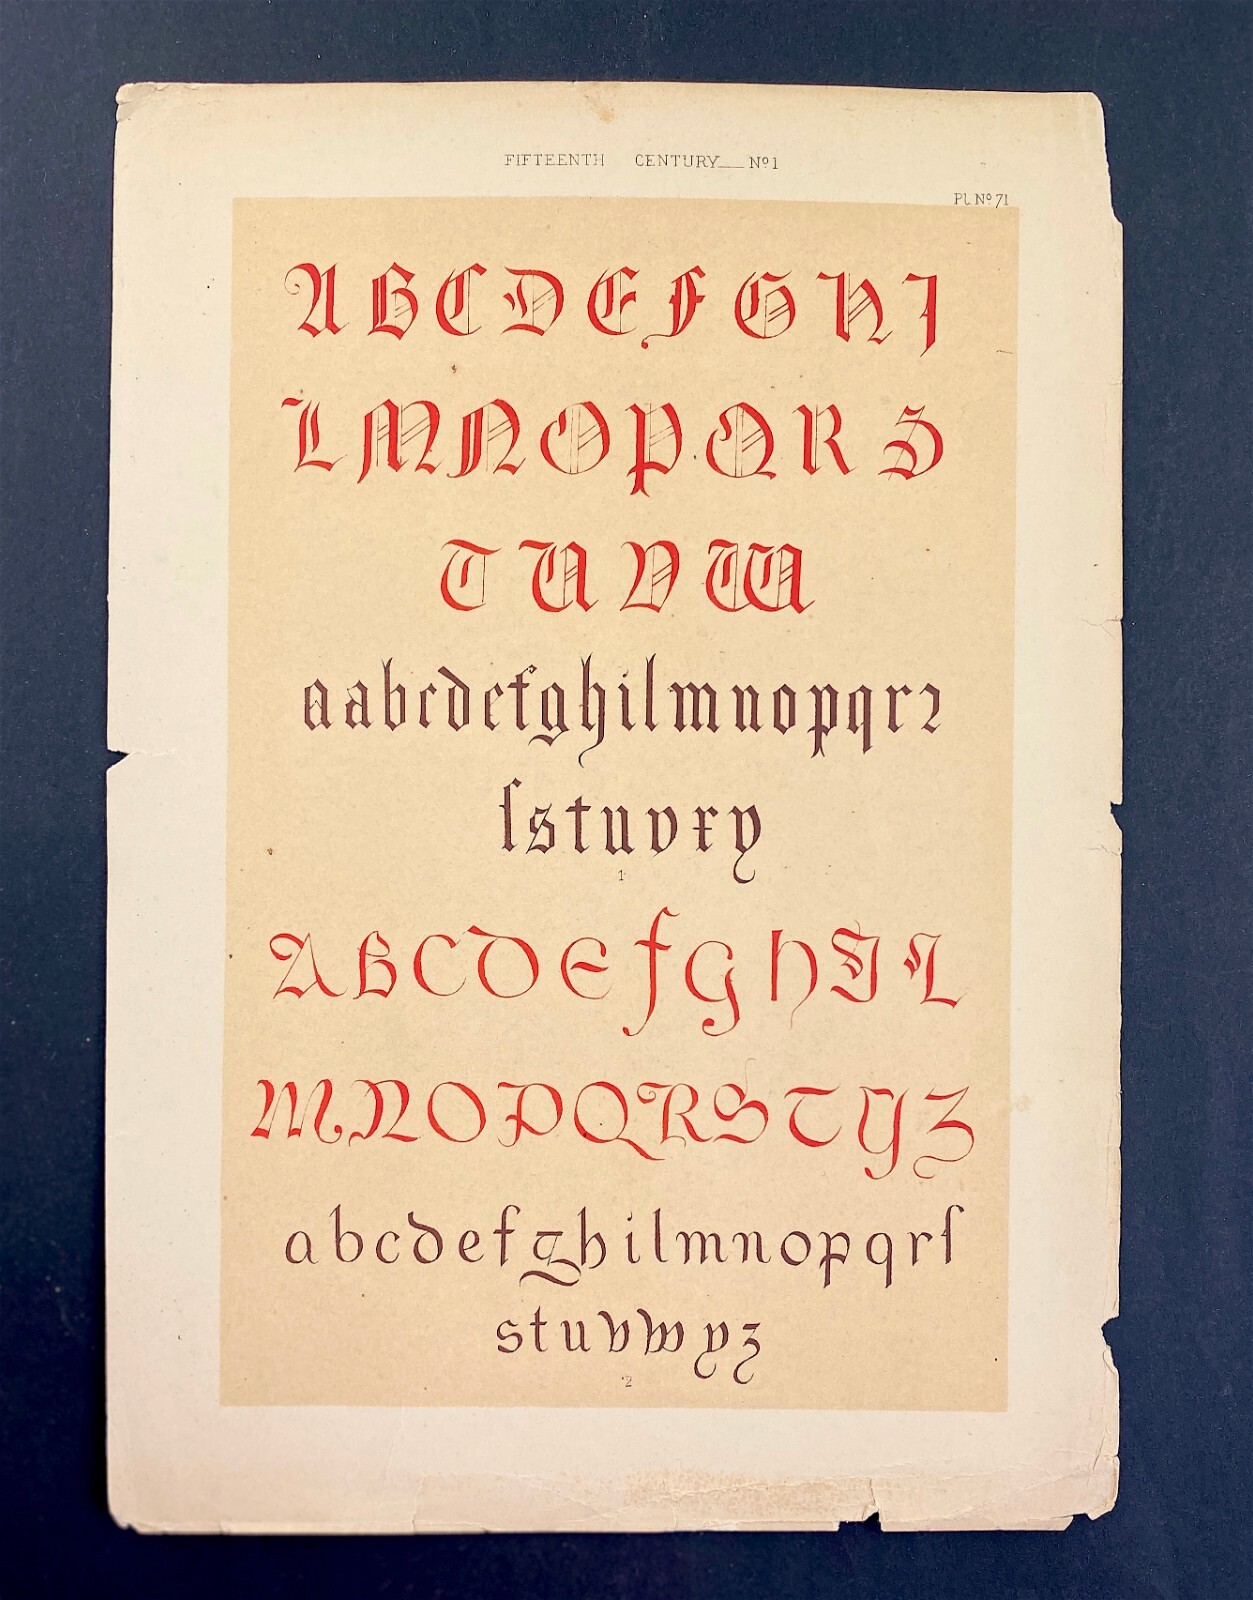 FIFTEENTH CENTURY__Nº1
Pl. Nº 71
A B C D E F G H I
L M N O P Q R S
T U V W
a a b c d e f g h i l m n o p q r ꝛ
ſ s t u v x y
1
A B C D E f G H I L
M N O P Q R S T Y Z
a b c d e f g h i l m n o p q r ſ
s t u v w y z
2